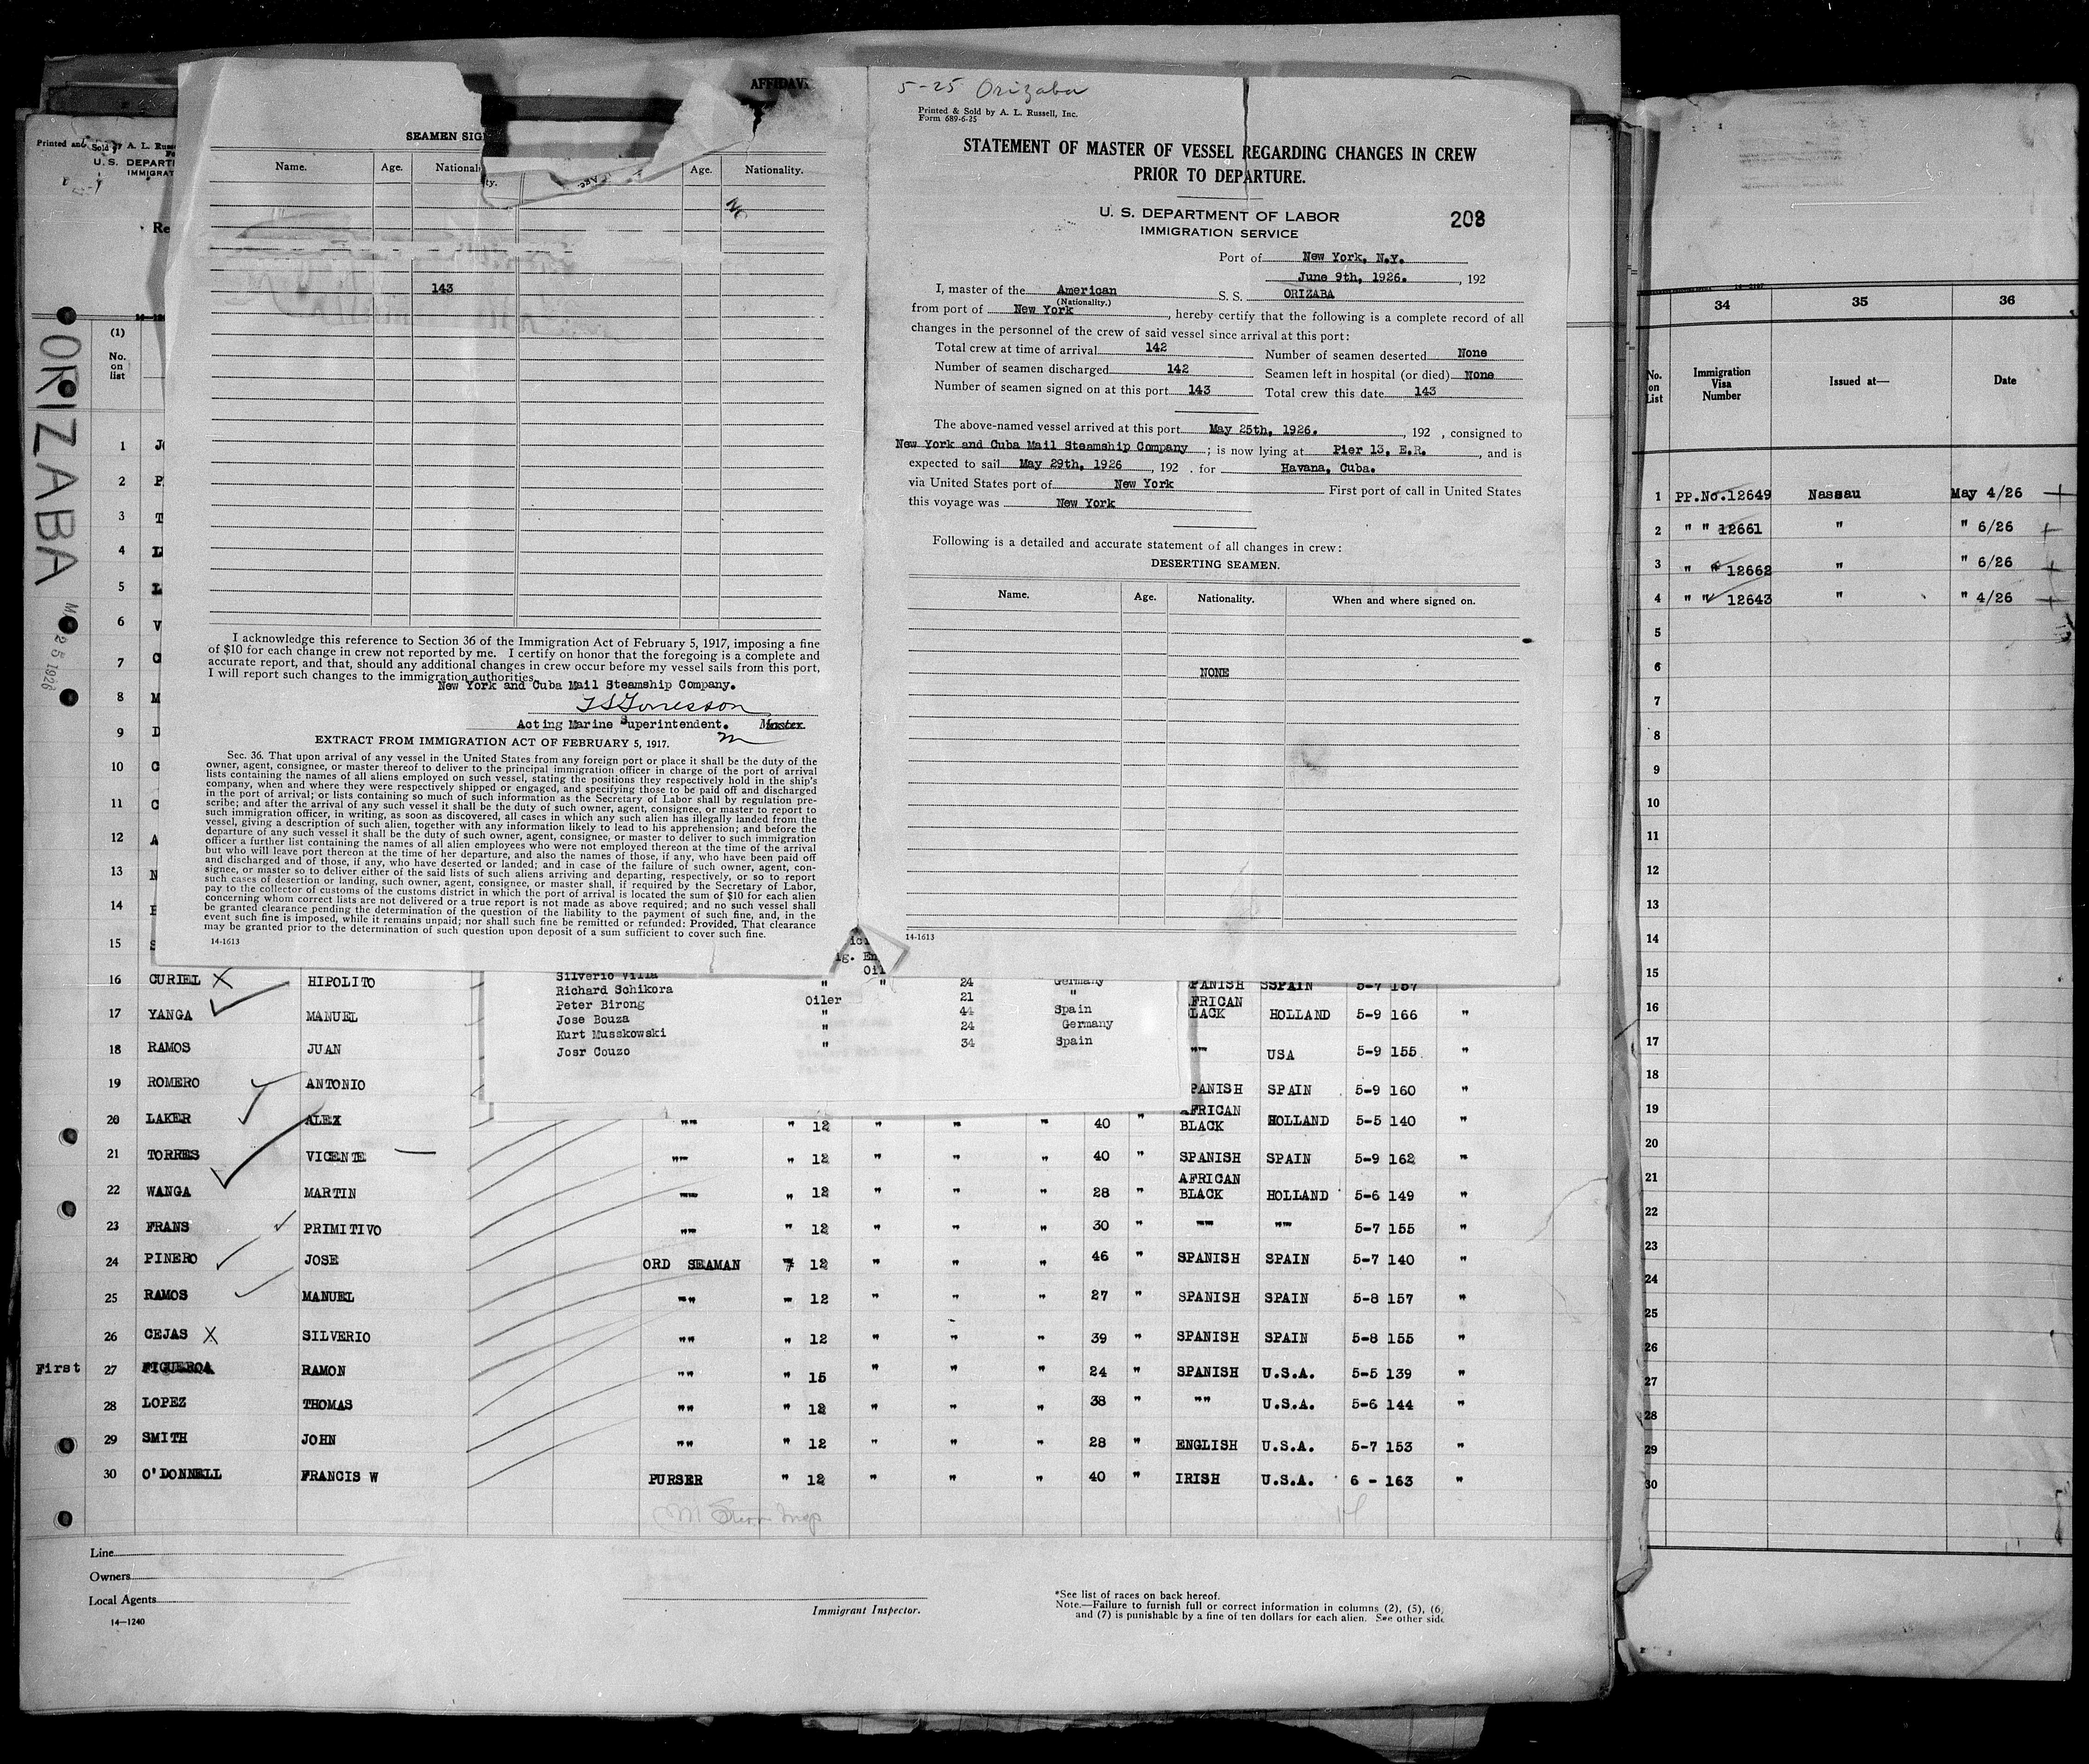 5-25 Orizaba
Printed & Sold by A. L. Russell, Inc.
Form 689-6-25
STATEMENT OF MASTER OF VESSEL REGARDING CHANGES IN CREW
PRIOR TO DEPARTURE.
U. S. DEPARTMENT OF LABOR
IMMIGRATION SERVICE
208
Port of New York, N.Y.
June 9th, 1926. , 192
I, master of the American S. S. ORIZABA
(Nationality.)
from port of New York , hereby certify that the following is a complete record of all
changes in the personnel of the crew of said vessel since arrival at this port:
Total crew at time of arrival 142 Number of seamen deserted None
Number of seamen discharged 142 Seamen left in hospital (or died) None
Number of seamen signed on at this port 143 Total crew this date 143
The above-named vessel arrived at this port May 25th, 1926. , 192 , consigned to
New York and Cuba Mail Steamship Company ; is now lying at Pier 13, E.R. , and is
expected to sail May 29th, 1926 , 192 . for Havana, Cuba.
via United States port of New York First port of call in United States
this voyage was New York
Following is a detailed and accurate statement of all changes in crew:
DESERTING SEAMEN.
Name. Age. Nationality. When and where signed on.
NONE
14-1613
AFFIDAV
SEAMEN SIG
Name. Age. Nationality. Age. Nationality.
143
I acknowledge this reference to Section 36 of the Immigration Act of February 5, 1917, imposing a fine
of $10 for each change in crew not reported by me. I certify on honor that the foregoing is a complete and
accurate report, and that, should any additional changes in crew occur before my vessel sails from this port,
I will report such changes to the immigration authorities.
New York and Cuba Mail Steamship Company.
Acting Marine Superintendent. Master
EXTRACT FROM IMMIGRATION ACT OF FEBRUARY 5, 1917.
Sec. 36. That upon arrival of any vessel in the United States from any foreign port or place it shall be the duty of the
owner, agent, consignee, or master thereof to deliver to the principal immigration officer in charge of the port of arrival
lists containing the names of all aliens employed on such vessel, stating the positions they respectively hold in the ship's
company, when and where they were respectively shipped or engaged, and specifying those to be paid off and discharged
in the port of arrival; or lists containing so much of such information as the Secretary of Labor shall by regulation pre-
scribe; and after the arrival of any such vessel it shall be the duty of such owner, agent, consignee, or master to report to
such immigration officer, in writing, as soon as discovered, all cases in which any such alien has illegally landed from the
vessel, giving a description of such alien, together with any information likely to lead to his apprehension; and before the
departure of any such vessel it shall be the duty of such owner, agent, consignee, or master to deliver to such immigration
officer a further list containing the names of all alien employees who were not employed thereon at the time of the arrival
but who will leave port thereon at the time of her departure, and also the names of those, if any, who have been paid off
and discharged and of those, if any, who have deserted or landed; and in case of the failure of such owner, agent, con-
signee, or master so to deliver either of the said lists of such aliens arriving and departing, respectively, or so to report
such cases of desertion or landing, such owner, agent, consignee, or master shall, if required by the Secretary of Labor,
pay to the collector of customs of the customs district in which the port of arrival is located the sum of $10 for each alien
concerning whom correct lists are not delivered or a true report is not made as above required; and no such vessel shall
be granted clearance pending the determination of the question of the liability to the payment of such fine, and, in the
event such fine is imposed, while it remains unpaid; nor shall such fine be remitted or refunded: Provided, That clearance
may be granted prior to the determination of such question upon deposit of a sum sufficient to cover such fine.
14-1613
Silverio Villa " " 24 Germany
Richard Schikora Oiler 21 "
Peter Birong " 44 Spain
Jose Bouza " 24 Germany
Kurt Musskowski " 34 Spain
Josr Couzo
Printed and Sold by A. L. Russ
U. S. DEPART
IMMIGRAT
ORIZABA
MA 25 1926
(1)
No. on list
1
2
3
4
5
6
7
8
9
10
11
12
13
14
15
16 CURIEL X HIPOLITO SPANISH SPAIN 5-7 157
17 YANGA MANUEL AFRICAN BLACK HOLLAND 5-9 166 "
18 RAMOS JUAN "" USA 5-9 155 "
19 ROMERO ANTONIO SPANISH SPAIN 5-9 160 "
20 LAKER ALEX "" " 12 " " " 40 " AFRICAN BLACK HOLLAND 5-5 140 "
21 TORRES VICENTE "" " 12 " " " 40 " SPANISH SPAIN 5-9 162 "
22 WANGA MARTIN "" " 12 " " " 28 " AFRICAN BLACK HOLLAND 5-6 149 "
23 FRANS PRIMITIVO "" " 12 " " " 30 " "" "" 5-7 155 "
24 PINERO JOSE ORD SEAMAN " 12 " " " 46 " SPANISH SPAIN 5-7 140 "
25 RAMOS MANUEL "" " 12 " " " 27 " SPANISH SPAIN 5-8 157 "
26 CEJAS X SILVERIO "" " 12 " " " 39 " SPANISH SPAIN 5-8 155 "
First 27 FIGUEROA RAMON "" " 15 " " " 24 " SPANISH U.S.A. 5-5 139 "
28 LOPEZ THOMAS "" " 12 " " " 38 " "" U.S.A. 5-6 144 "
29 SMITH JOHN "" " 12 " " " 28 " ENGLISH U.S.A. 5-7 153 "
30 O'DONNELL FRANCIS W PURSER " 12 " " " 40 " IRISH U.S.A. 6 - 163 "
Line
Owners
Local Agents
14-1240
Immigrant Inspector.
*See list of races on back hereof.
Note.—Failure to furnish full or correct information in columns (2), (5), (6,
and (7) is punishable by a fine of ten dollars for each alien. See other side
34 35 36
No. on List Immigration Visa Number Issued at— Date
1 PP.No.12649 Nassau May 4/26
2 " " 12661 " " 6/26
3 " " 12662 " " 6/26
4 " " 12643 " " 4/26
5
6
7
8
9
10
11
12
13
14
15
16
17
18
19
20
21
22
23
24
25
26
27
28
29
30